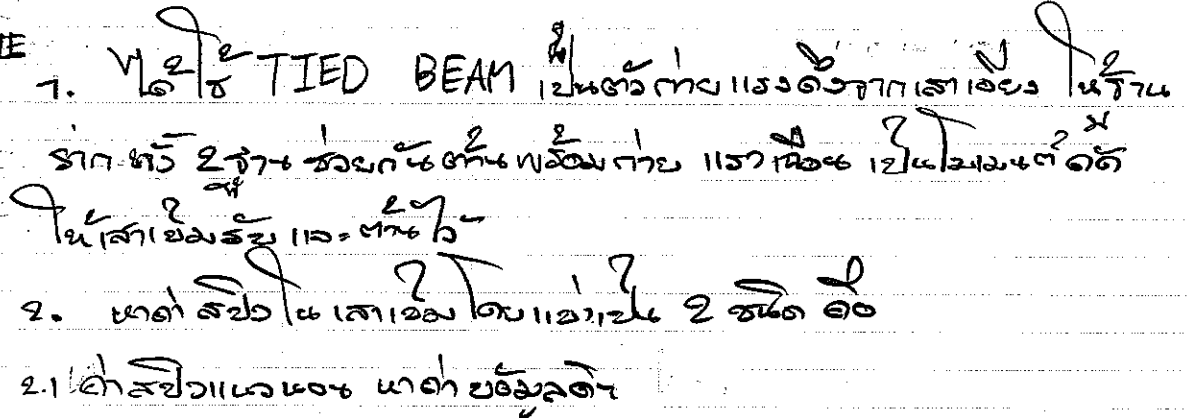 TE
1. ได้ใช้ TIED BEAM เป็นตัวถ่ายแรงดึงจากเสาเอียง ให้ฐาน
ราก ทั้ง 2 ฐาน ช่วยกันต้านพร้อมถ่าย แรงเฉือน เป็นโมเมนต์ดัด
ให้เสาเข็มรับ และต้านไว้
2. หาค่า สปิง ใน เสาเข็ม โดยแบ่งเป็น 2 ชนิด คือ
2.1 ค่าสปิงแนวนอน หาค่า ข้อมูลดิน